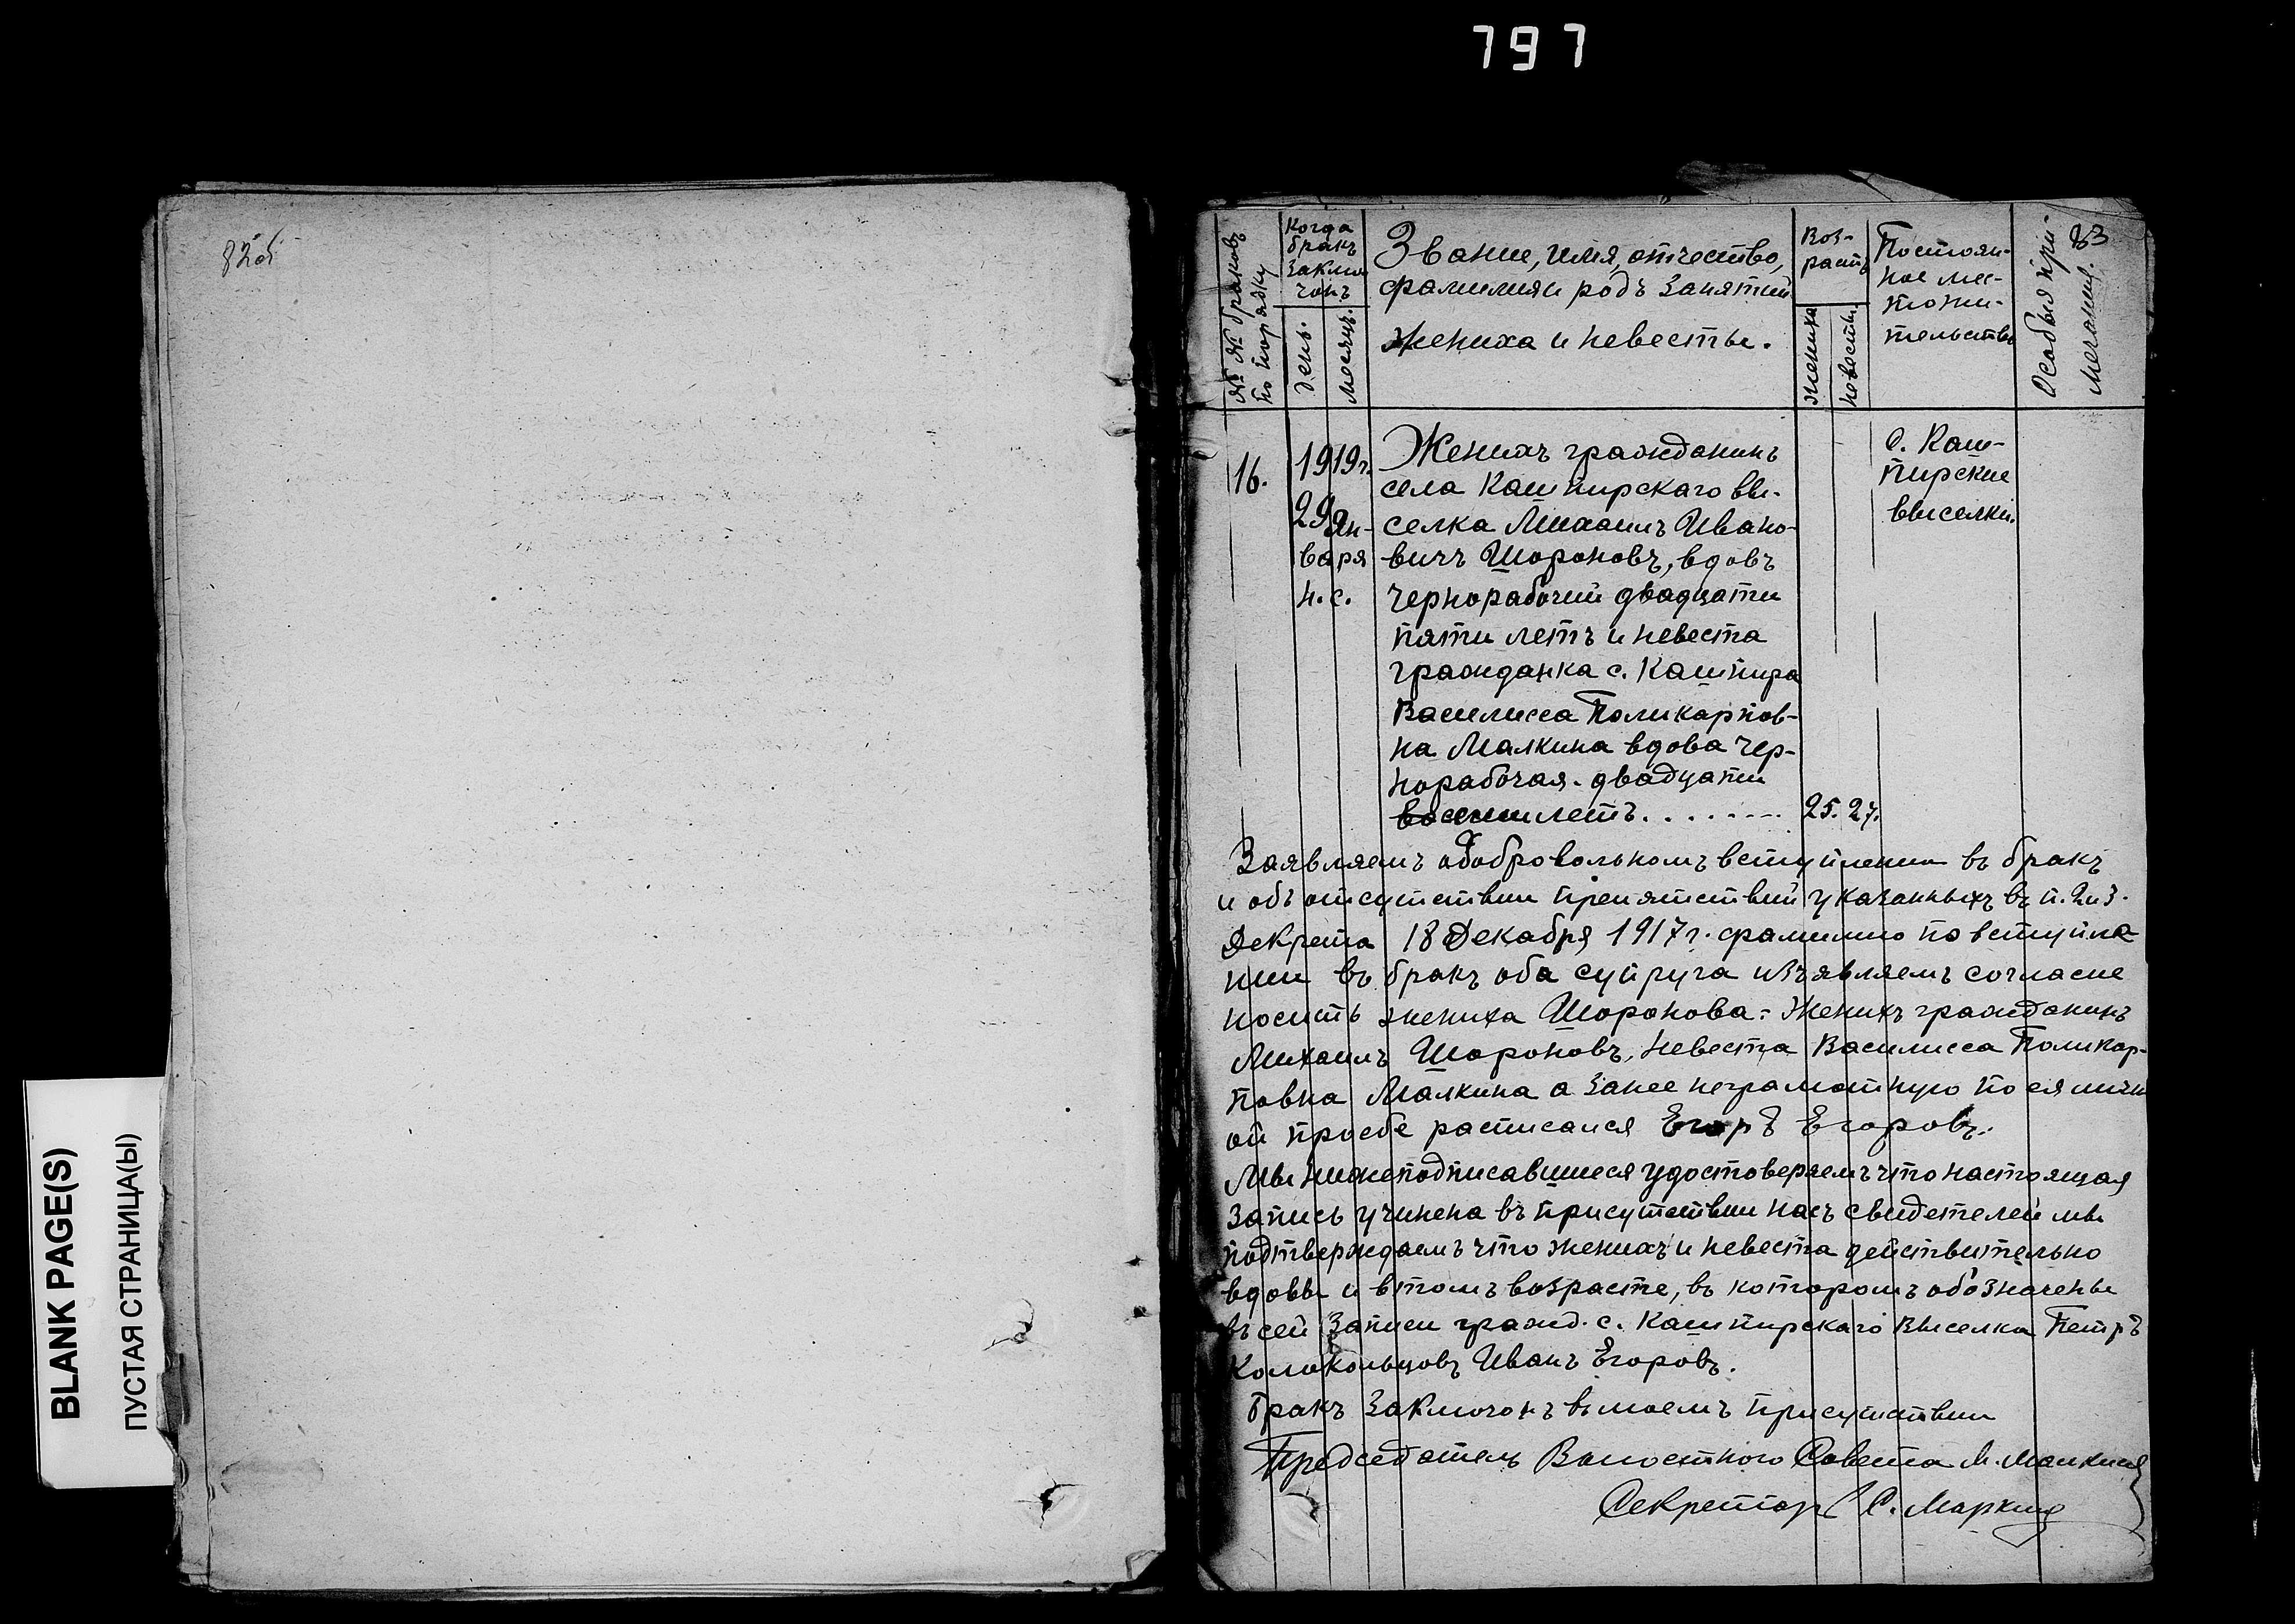 797
82об
BLANK PAGE(S)
ПУСТАЯ СТРАНИЦА(Ы)
83
№ № браковъ
по порядку
Когда
бракъ
заклю
чонъ
день.
месяцъ.
Звание, имя, отчество,
фамилия и родъ занятий
жениха и невесты.
Воз-
растъ
жениха
невесты.
Постоян-
ное мес-
тожи-
тельство
Особыя при
мечания.
16.
1919г.
29 Ян-
варя
н. с.
Женихъ гражданинъ
села Кашпирскаго вы-
селка Михаилъ Ивано-
вичъ Шороновъ, вдовъ
чернорабочий двадцати
пяти летъ и невеста
гражданка с. Кашпира
Василисса Поликарпов-
на Малкина вдова чер-
норабочая. двадцати
восеми летъ. . . . . . . .
25. 27.
с. Каш-
пирские
выселки.
Заявляемъ о добровольномъ вступлении въ бракъ
и объ отсутствии препятствий указанныхъ въ п. 2 и 3.
Декрета 18 Декабря 1917 г. фамилию по вступле-
нии въ бракъ оба супруга изъявляемъ согласие
носить жениха Шоронова. Женихъ гражданинъ
Михаилъ Шороновъ, Невеста Василисса Поликар-
повна Малкина а за нее неграмотную по ея личн
ой прозбе расписался Егоръ Егоровъ.
Мы нижеподписавшиеся удостоверяемъ что настоящая
запись учинена въ присутствии насъ свидетелей мы
подтверждаемъ что женихъ и невеста действительно
вдовы и втомъ возрасте, въ которомъ обозначены
въ сей записи гражд. с. Кашпирскаго Выселка Петръ
Колокольцовъ Иванъ Егоровъ.
Бракъ заключонъ въ моемъ присутствии
Председатель Волостного Совета М. Малкинъ
Секретарь С. Маркинъ